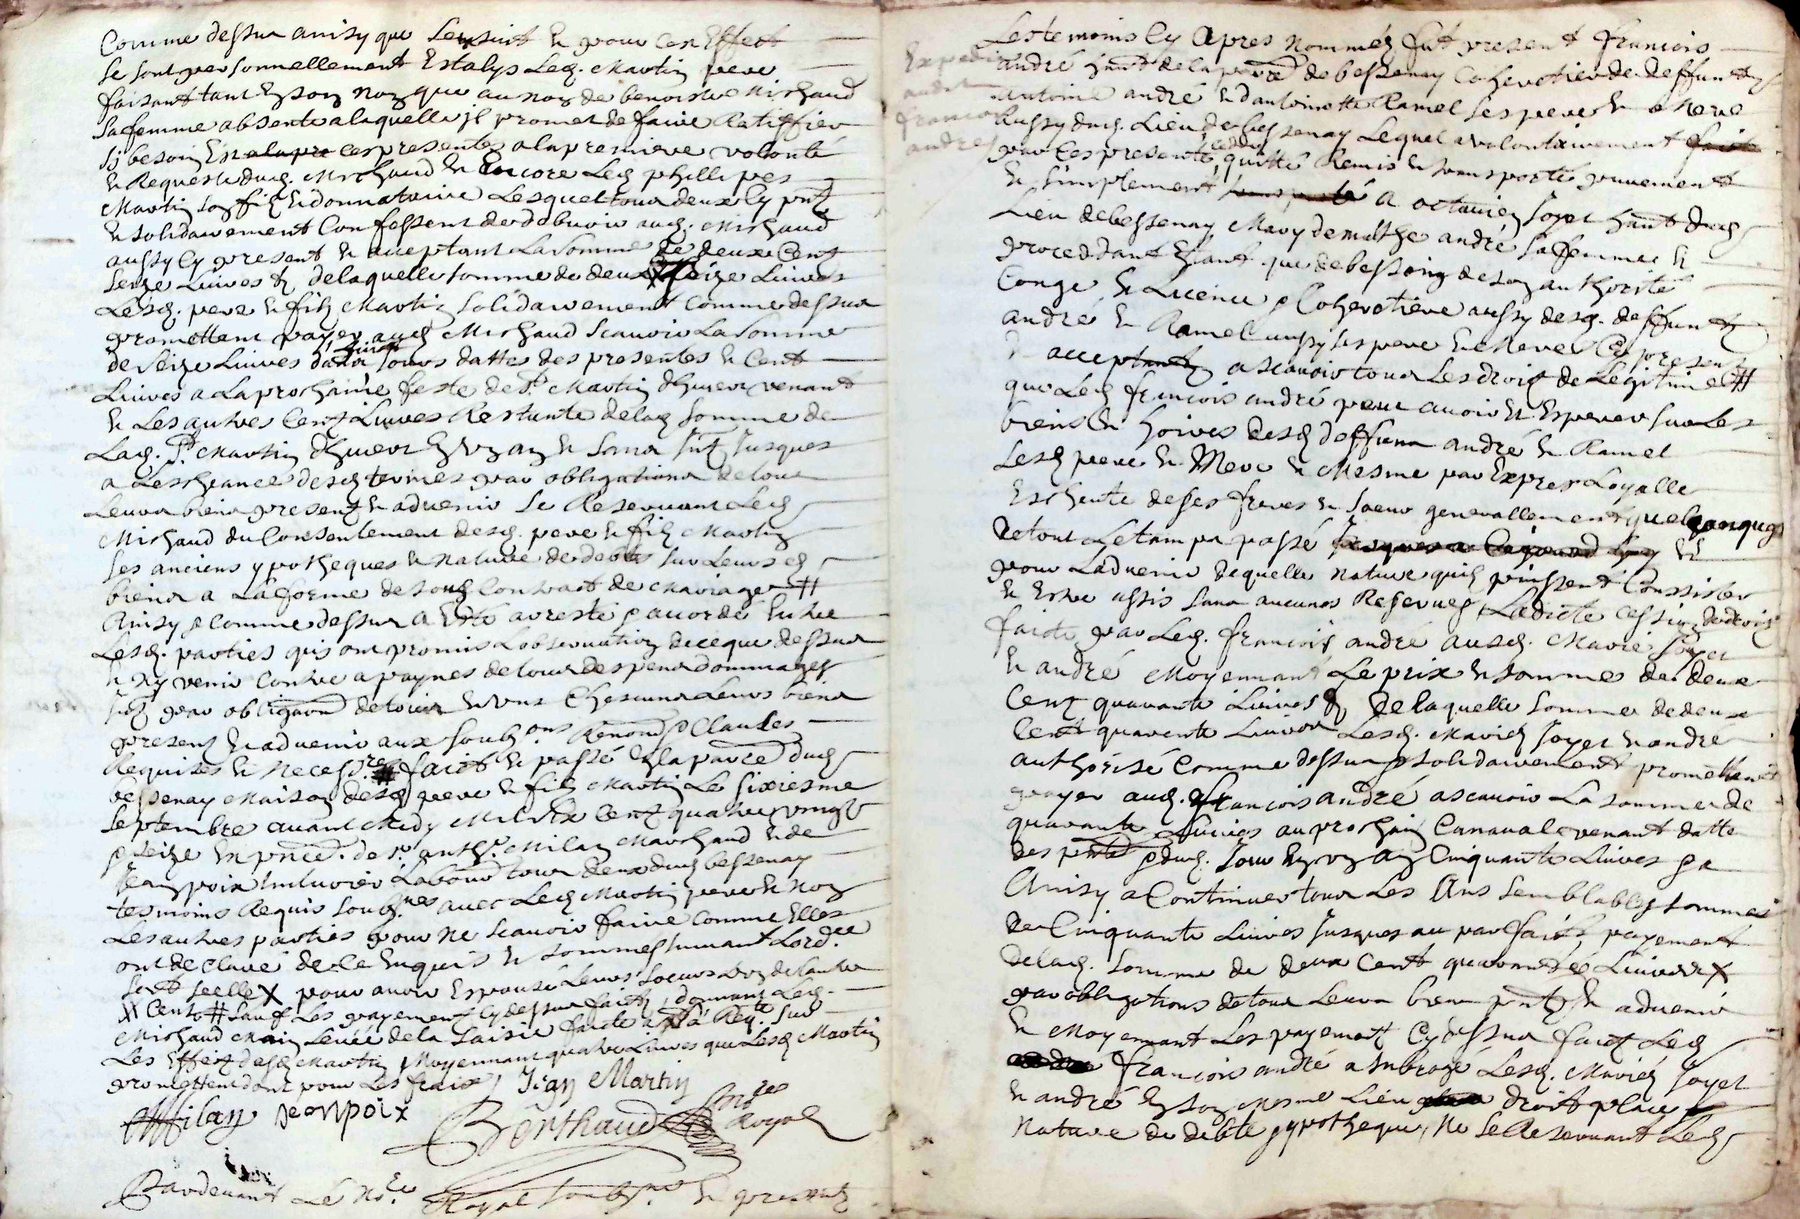 Comme dessus ainsy que sensuit & pour cest Effect
se sont personnellement Establys Led. Martin pere
faisant tant En son nom que au nom de benoiste Michaud
sa femme absente a laquelle jl promet de faire Ratiffier
sj besoin Est ces presentes a la premiere volonté
& Requeste dud. Michaud & Encore Led phillipes
Martin son filz & donnataire Lesquel tous deux Cy pntz
& solidairement Confessent de debvoir aud. Michaud
aussy Cy present & acceptant La somme de deux Cent
seize Livres delaquelle somme de deux seize Livres
Lesd. pere & filz Martin solidairement Comme dessus
promettent payer aud Michaud scauoir La somme
de seize Livres dans jours datte des presentes & Cent
Livres a La prochaine feste de St Martin dhiuer venant
& Les autres Cent Livres Restante delad somme de
Lad. St Martin dhiuer En Vn an & sans jusques
a Lescheance desd termes par obligations de tous
Leurs biens presentz & aduenir Se Reseruant Led
Michaud du Consentement desd. pere & filz Martin
ses anciens ypotheques & nature de debte sur Leursd
biens a La forme de sond Contract de Mariage #
Ainsy Comme dessus a Esté arresté & accordé Entre
Lesd. parties quis ont promis Lobseruation de ce que dessus
& ny venir Contre a paynes de tous despens dommages
par obligaons de tous Chescuns Leurs biens
presentz & aduenir aux soubons Renonns & Clauses
Requises & Necessres faict & passé En la parre dud
bessenay Maison desd pere & filz Martin Le sixiesme
septembre auant Midy Mil six Cent quatre vingt
& seize En pnce. de sr. anthe. Milan Marchand & de
Jean poix Laboureur tous deux dud bessenay
tesmoins Requis soubnes auec Led Martin pere & non
Les autres parties pour ne scauoir faire Comme Elles
ont declaré de ce Enquis & sommes suiuant Lordce
sont seelle X pour auoir Espousé Leurs soeurs Lun de Lautre
X Cent # sauf Les payement Cy dessus faictz, donnant Led.
Michaud Main Leuée de la saisie faicte a sa Reqte. sur
Les Effectz desd Martin Moyennant quatre Livres que Lesd Martin
promettent dont pour Les fraix Jean Martin
AMilan Jean poix
Berthaud Royal
Pardeuant Le Nore Royal soubne & presentz
Expedié
audit
francois
andre
Les temoins Cy Apres Nommés fut present francois
andré hant de la parre de bessenay Coheretier de deffunct
Antoine andré & dantoinette Ramel ses pere & Mere
Lieu de bessenay Lequel a volontairement
par Ces presente cedde quitté Remis & transporté purement
& simplement a octauien soyer hant dud
Lieu de bessenay & Mary de mathe andré sa femme &
proceddant Estant que de bessoing de son authorité
Conge & Licence Coheretiere aussy desd. deffunctz
andré & Ramel aussy ses pere & Mere Cy present
& acceptant a scauoir tous Les droit de Legitime #
que Led francois andré peut auoir & Esperer sur Les
biens & hoiries desd deffunct andré & Ramel
Lesd pere & Mere & Mesme par Expres Loyalle
Escheute de ses freres & soeur generallement quelconques
de tout Le temps passé &
pour Laduenir de quelle nature quils puissent Consister
& Estre assis sans aucunes Reserues, Ladicte cession de droitz
faicte par Led. francois andré ausd. Mariés soyer
& andré Moyennant Le prix & sommes de deux
Cent quarante Livres de laquelle somme de deux
Cent quarente Livres Lesd. Mariés soyer & andré
authorisé Comme dessus & solidairement promettent
payer aud. francois andré a scauoir La somme de
quarante Livres au prochain Carnaval venant datte
des pntes & dud. Jour En Vn an Cinquante Livres &
Ainsy a Continuer tous Les Ans semblables sommes
de Cinquante Livres jusques au parfaict payement
delad. somme de deux Cent quarante Livres X
par obligations de tous Leurs biens pntz & aduenir
& Moyennant Les payement Cy dessus faictz Led
francois andré a subrogé Lesd. Mariés soyer
& andré En son Mesme Lieu droict place
Nature de debte ypotheque, Ne se Reseruant Led